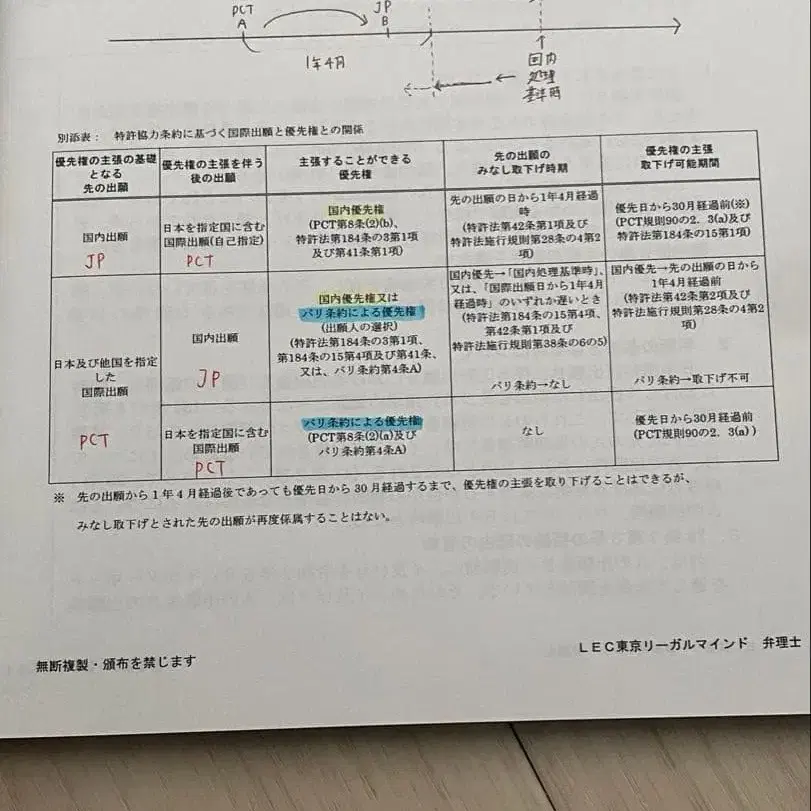 PCT
A
JP
B
1年4月
国内
処理
基準時
別添表： 特許協力条約に基づく国際出願と優先権との関係
優先権の主張の基礎
となる
先の出願
優先権の主張を伴う
後の出願
主張することができる
優先権
先の出願の
みなし取下げ時期
優先権の主張
取下げ可能期間
国内出願
JP
日本を指定国に含む
国際出願(自己指定)
PCT
国内優先権
(PCT第8条(2)(b)、
特許法第184条の3第1項
及び第41条第1項)
先の出願の日から1年4月経過
時
(特許法第42条第1項及び
特許法施行規則第28条の4第2
項)
優先日から30月経過前(※)
(PCT規則90の2．3(a)及び
特許法第184条の15第1項)
日本及び他国を指定
した
国際出願
PCT
国内出願
JP
国内優先権又は
パリ条約による優先権
(出願人の選択)
(特許法第184条の3第1項、
第184条の15第4項及び第41条、
又は、パリ条約第4条A)
国内優先→「国内処理基準時」、
又は、「国際出願日から1年4月
経過時」のいずれか遅いとき
(特許法第184条の15第4項、
第42条第1項及び
特許法施行規則第38条の6の5)
パリ条約→なし
国内優先→先の出願の日から
1年4月経過前
(特許法第42条第2項及び
特許法施行規則第28条の4第2
項)
パリ条約→取下げ不可
日本を指定国に含む
国際出願
PCT
パリ条約による優先権
(PCT第8条(2)(a)及び
パリ条約第4条A)
なし
優先日から30月経過前
(PCT規則90の2．3(a))
※ 先の出願から1年4月経過後であっても優先日から30月経過するまで、優先権の主張を取り下げることはできるが、
みなし取下げとされた先の出願が再度係属することはない。
無断複製・頒布を禁じます
LEC東京リーガルマインド 弁理士